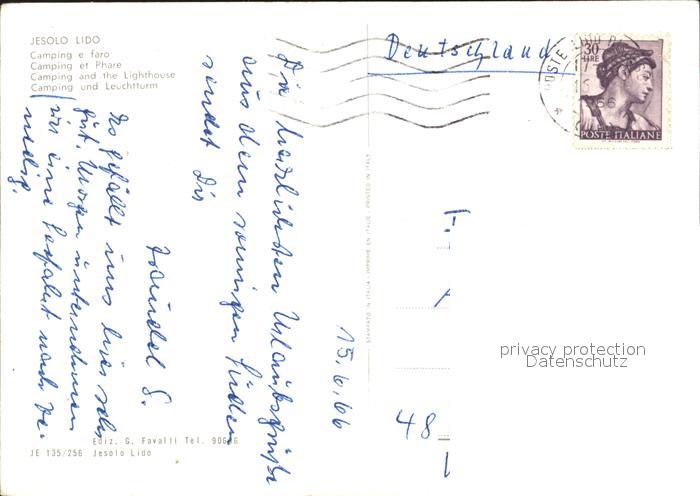 JESOLO LIDO
Camping e faro
Camping et Phare
Camping and the Lighthouse
Camping und Leuchtturm
Deutschland
30
LIRE
POSTE ITALIANE
15.6.66
Die herzlichsten Urlaubsgrüße
aus dem sonnigen Süden
sendet Dir
Traudel S.
Es gefällt uns hier sehr
gut. Morgen unternehmen
wir eine Seefahrt nach Ve-
nedig.
STAMPATO IN ITALIA - IMPRIMÉ EN ITALIE - PRINTED IN ITALY
privacy protection
Datenschutz
48
Ediz. G. Favalli Tel.
JE 135/256 Jesolo Lido